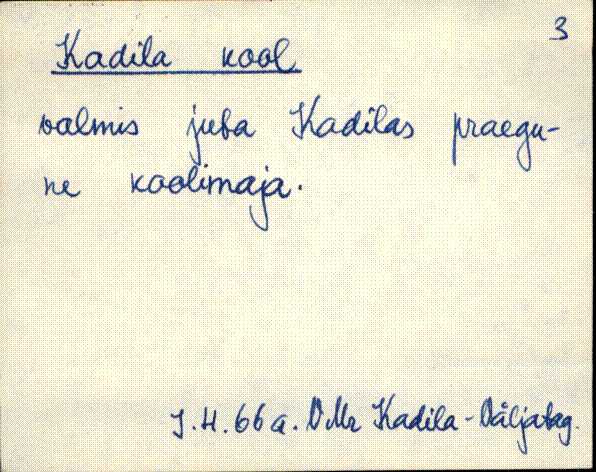 3
Kadila kool
valmis juba Kadilas praegu-
ne koolimaja.
J.H. 66 a. VMr Kadila-Väljatag.